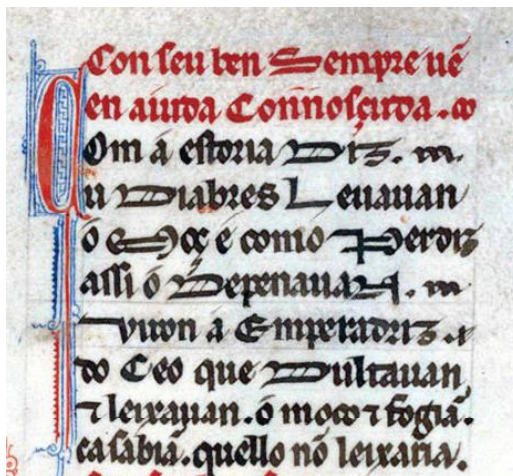 Con seu ben Sempre uẽ
en aiuda Connosçuda.
Com á estoria Diz.
u Diabres Leuauan
ó Moç é comó Perdiz
assi ó Depenauan.
Viron á Emperadriz.
do Ceo que Dultauan,
⁊ leixauan. ó moço ⁊ fogiã.
ca sabiã. quello nõ leixaria.